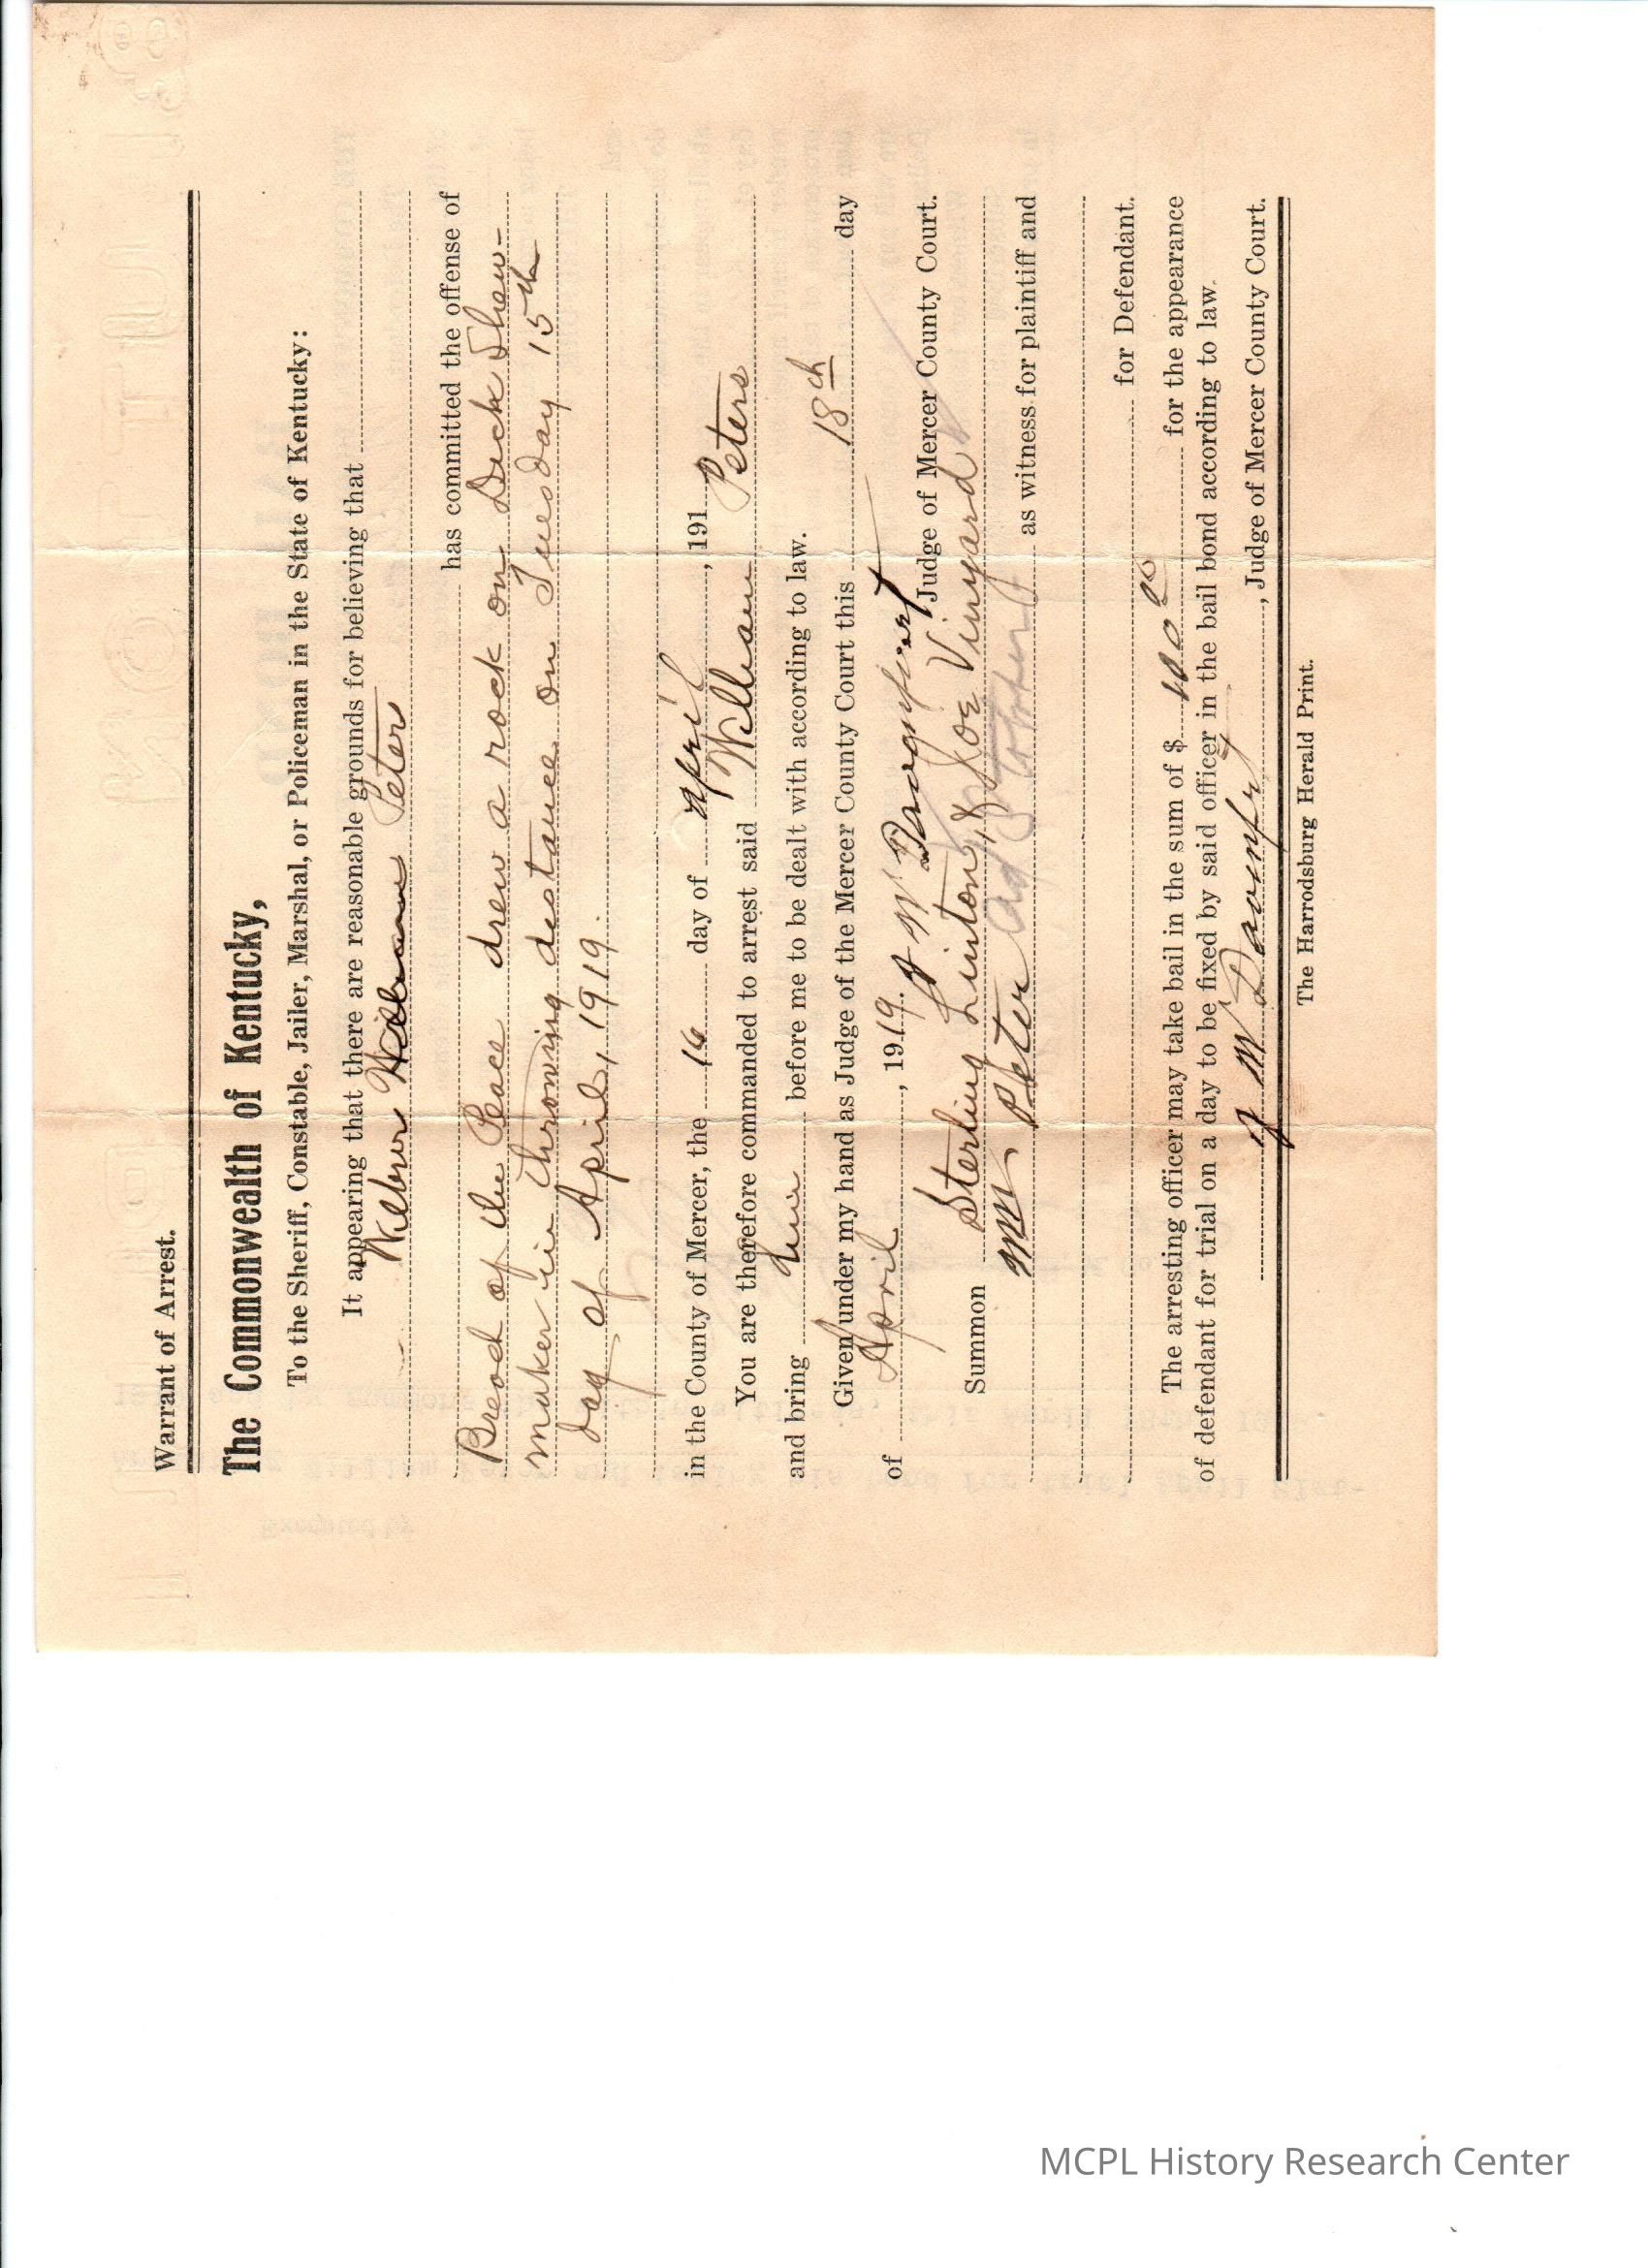 Warrant of Arrest.
The Commonwealth of Kentucky,
To the Sheriff, Constable, Jailer, Marshal, or Policeman in the State of Kentucky:
It appearing that there are reasonable grounds for believing that
Wilbur William Peters
has committed the offense of
Breach of the Peace drew a rock on Dick Shew-
maker in throwing distance on Tuesday 15th
day of April, 1919.
in the County of Mercer, the 16 day of April, 191
You are therefore commanded to arrest said William Peters
and bring him before me to be dealt with according to law.
Given under my hand as Judge of the Mercer County Court this 18th day
of April, 1919.
Judge of Mercer County Court.
Summon Sterling Linton, & Joe Vinyard
Peter as witness for plaintiff and
for Defendant.
The arresting officer may take bail in the sum of $ 100 00 for the appearance
of defendant for trial on a day to be fixed by said officer in the bail bond according to law.
, Judge of Mercer County Court.
The Harrodsburg Herald Print.
MCPL History Research Center